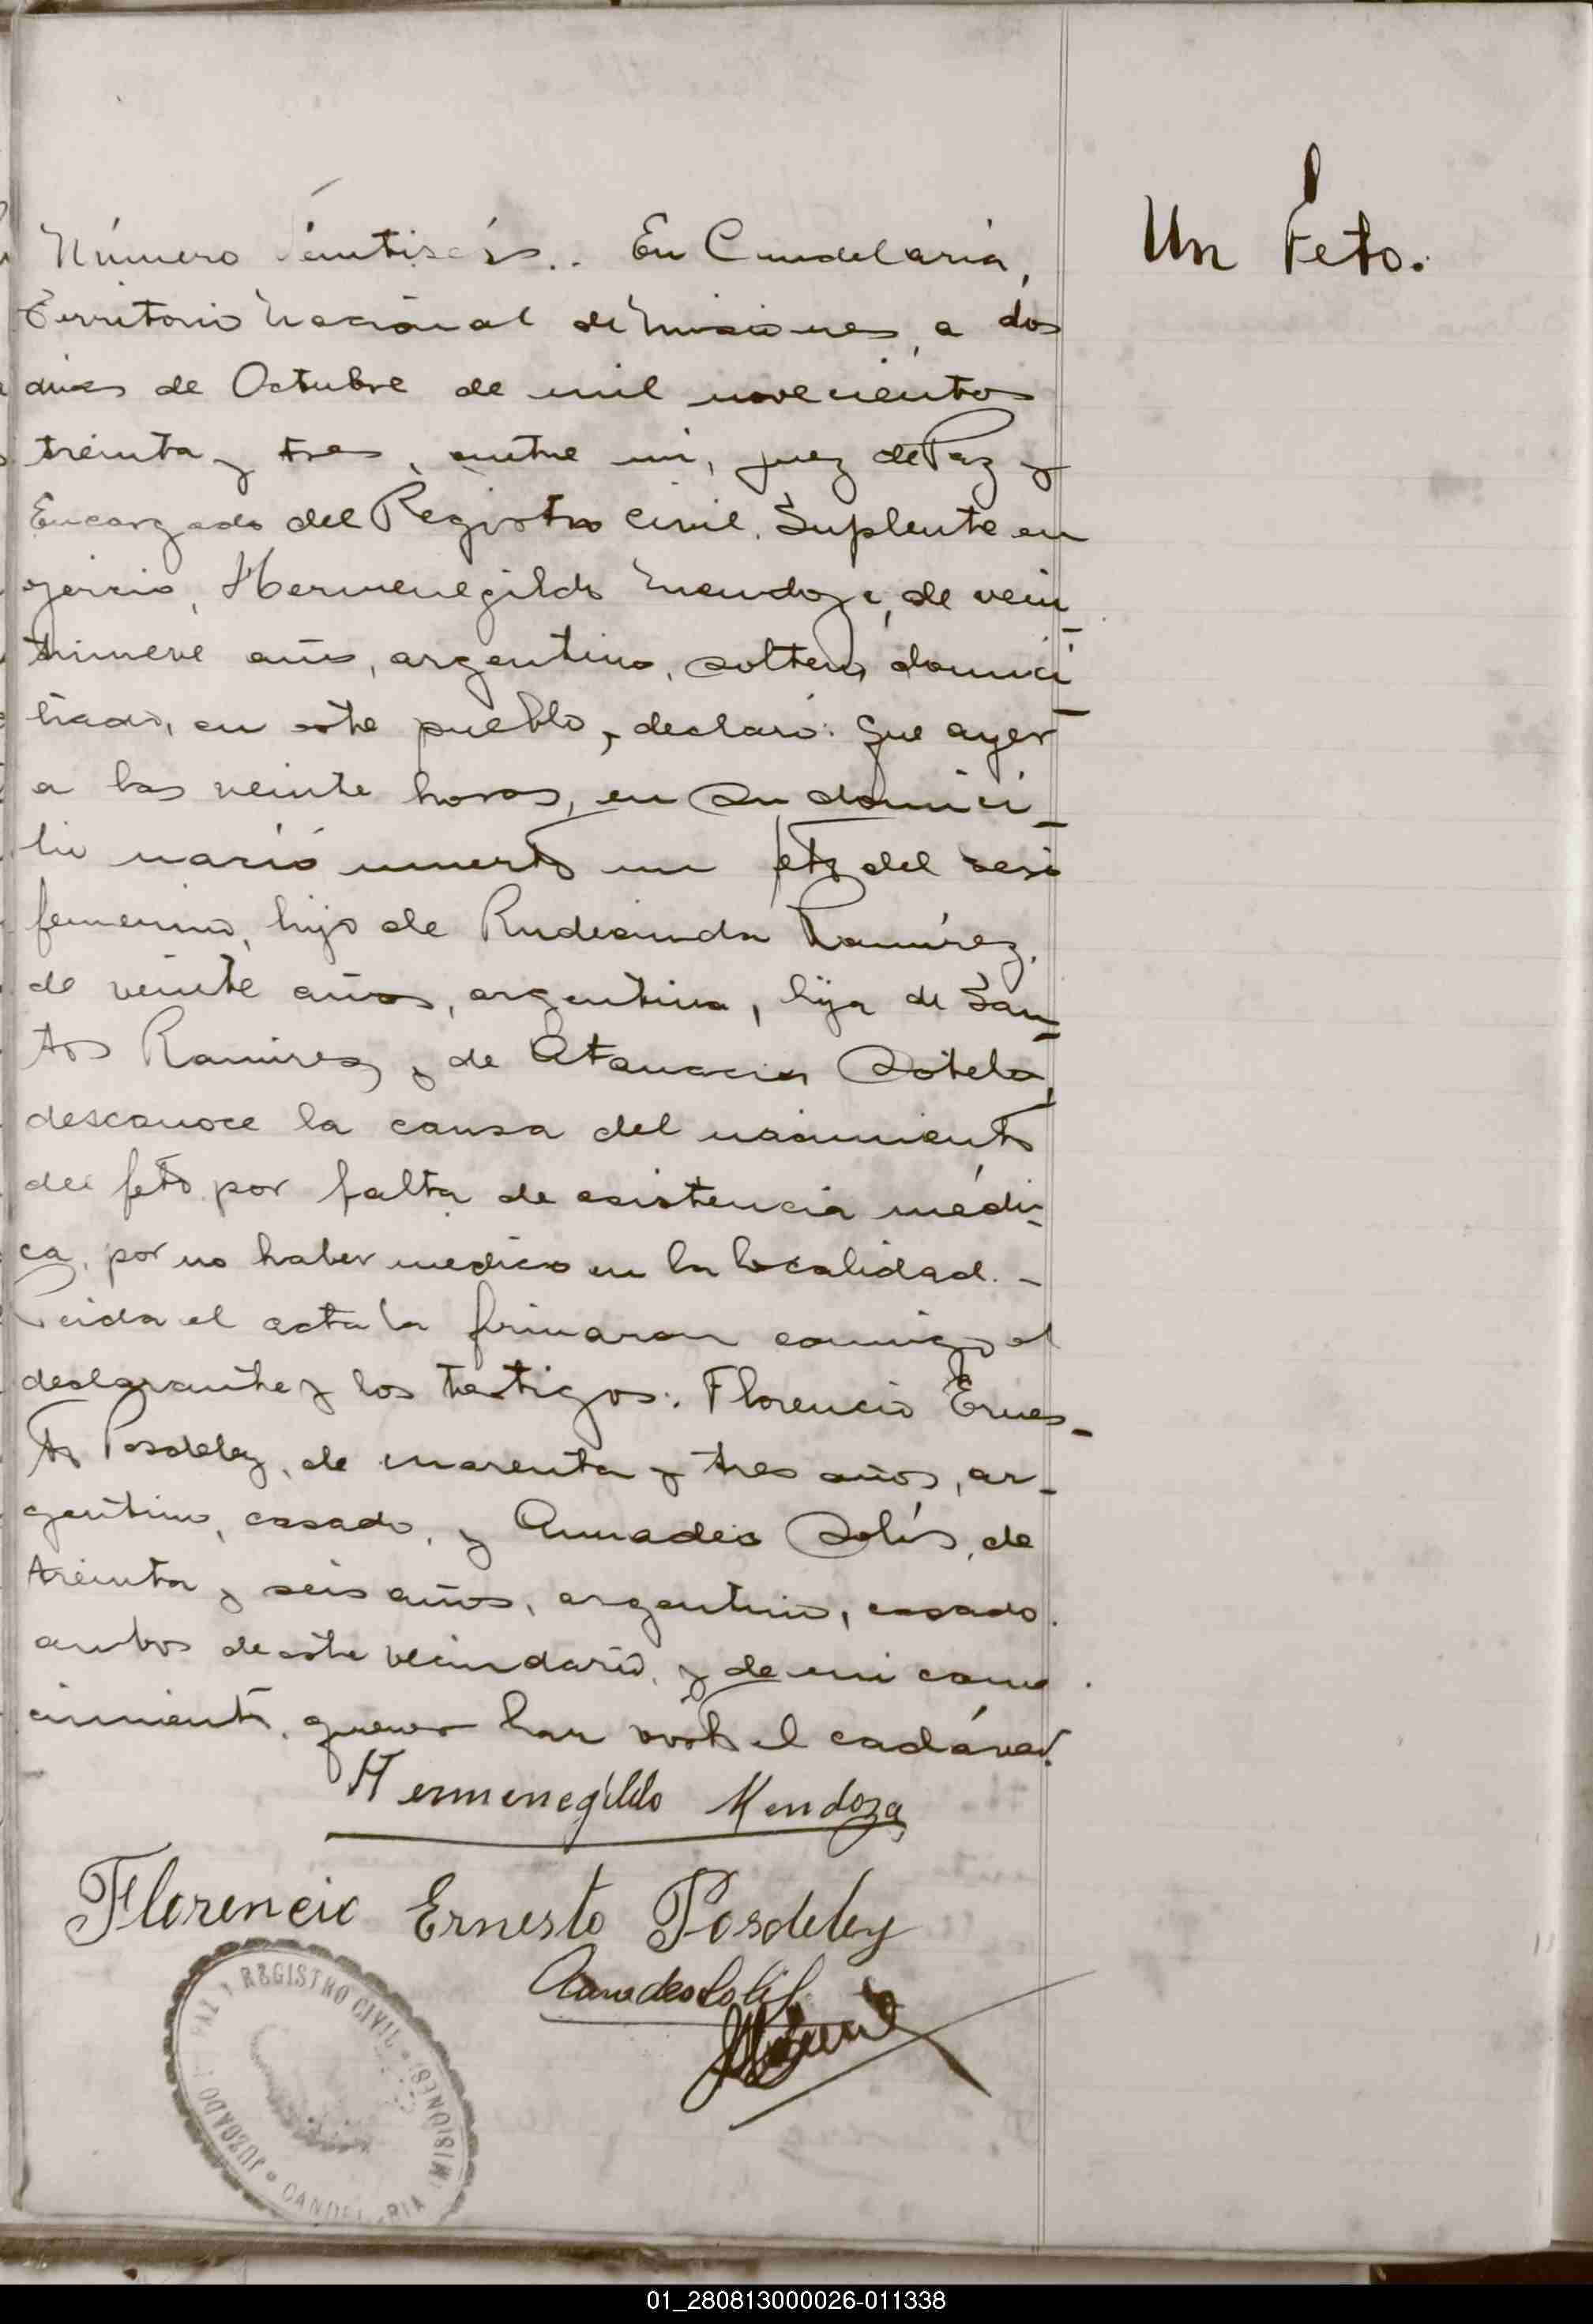 Número veintiseis.. En Candelaria,
Territorio Nacional de Misiones, a dos
dias de Octubre de mil novecientos
treinta y tres, antre mi, juez de Paz y
Encargado del Registro Civil. Suplente en
ejercicio, Hermenegildo Mendoza, de vein_
tinueve años, argentino, soltero, domici_
liado, en este pueblo, declaró: Que ayer
a las veinte horas, en su domici_
lio nació muerto un feto del sexo
femenino, hijo de Rudecinda Ramírez,
de veinte años, argentina, hija de San_
tos Ramirez y de Atanacia Sotelo,
desconoce la causa del nacimiento
del feto por falta de asistencia médi_
ca, por no haber medico en la localidad. -
Leida el acta la firmaron conmigo el
declarante y los testigos: Florencio Ernes_
to Posdeley, de cuarenta y tres años, ar_
gentino, casado, y Amadeo Solís, de
treinta y seis años, argentino, casado.
ambos de este vecindario, y de mi cono
cimiento, quienes han visto el cadáver.
Hermenegildo Mendoza
Florencio Ernesto Posdeley
Amadeo Solis
JUZGADO DE PAZ Y REGISTRO CIVIL • (MISIONES) CANDELARIA •
Un Feto.
01_280813000026-011338